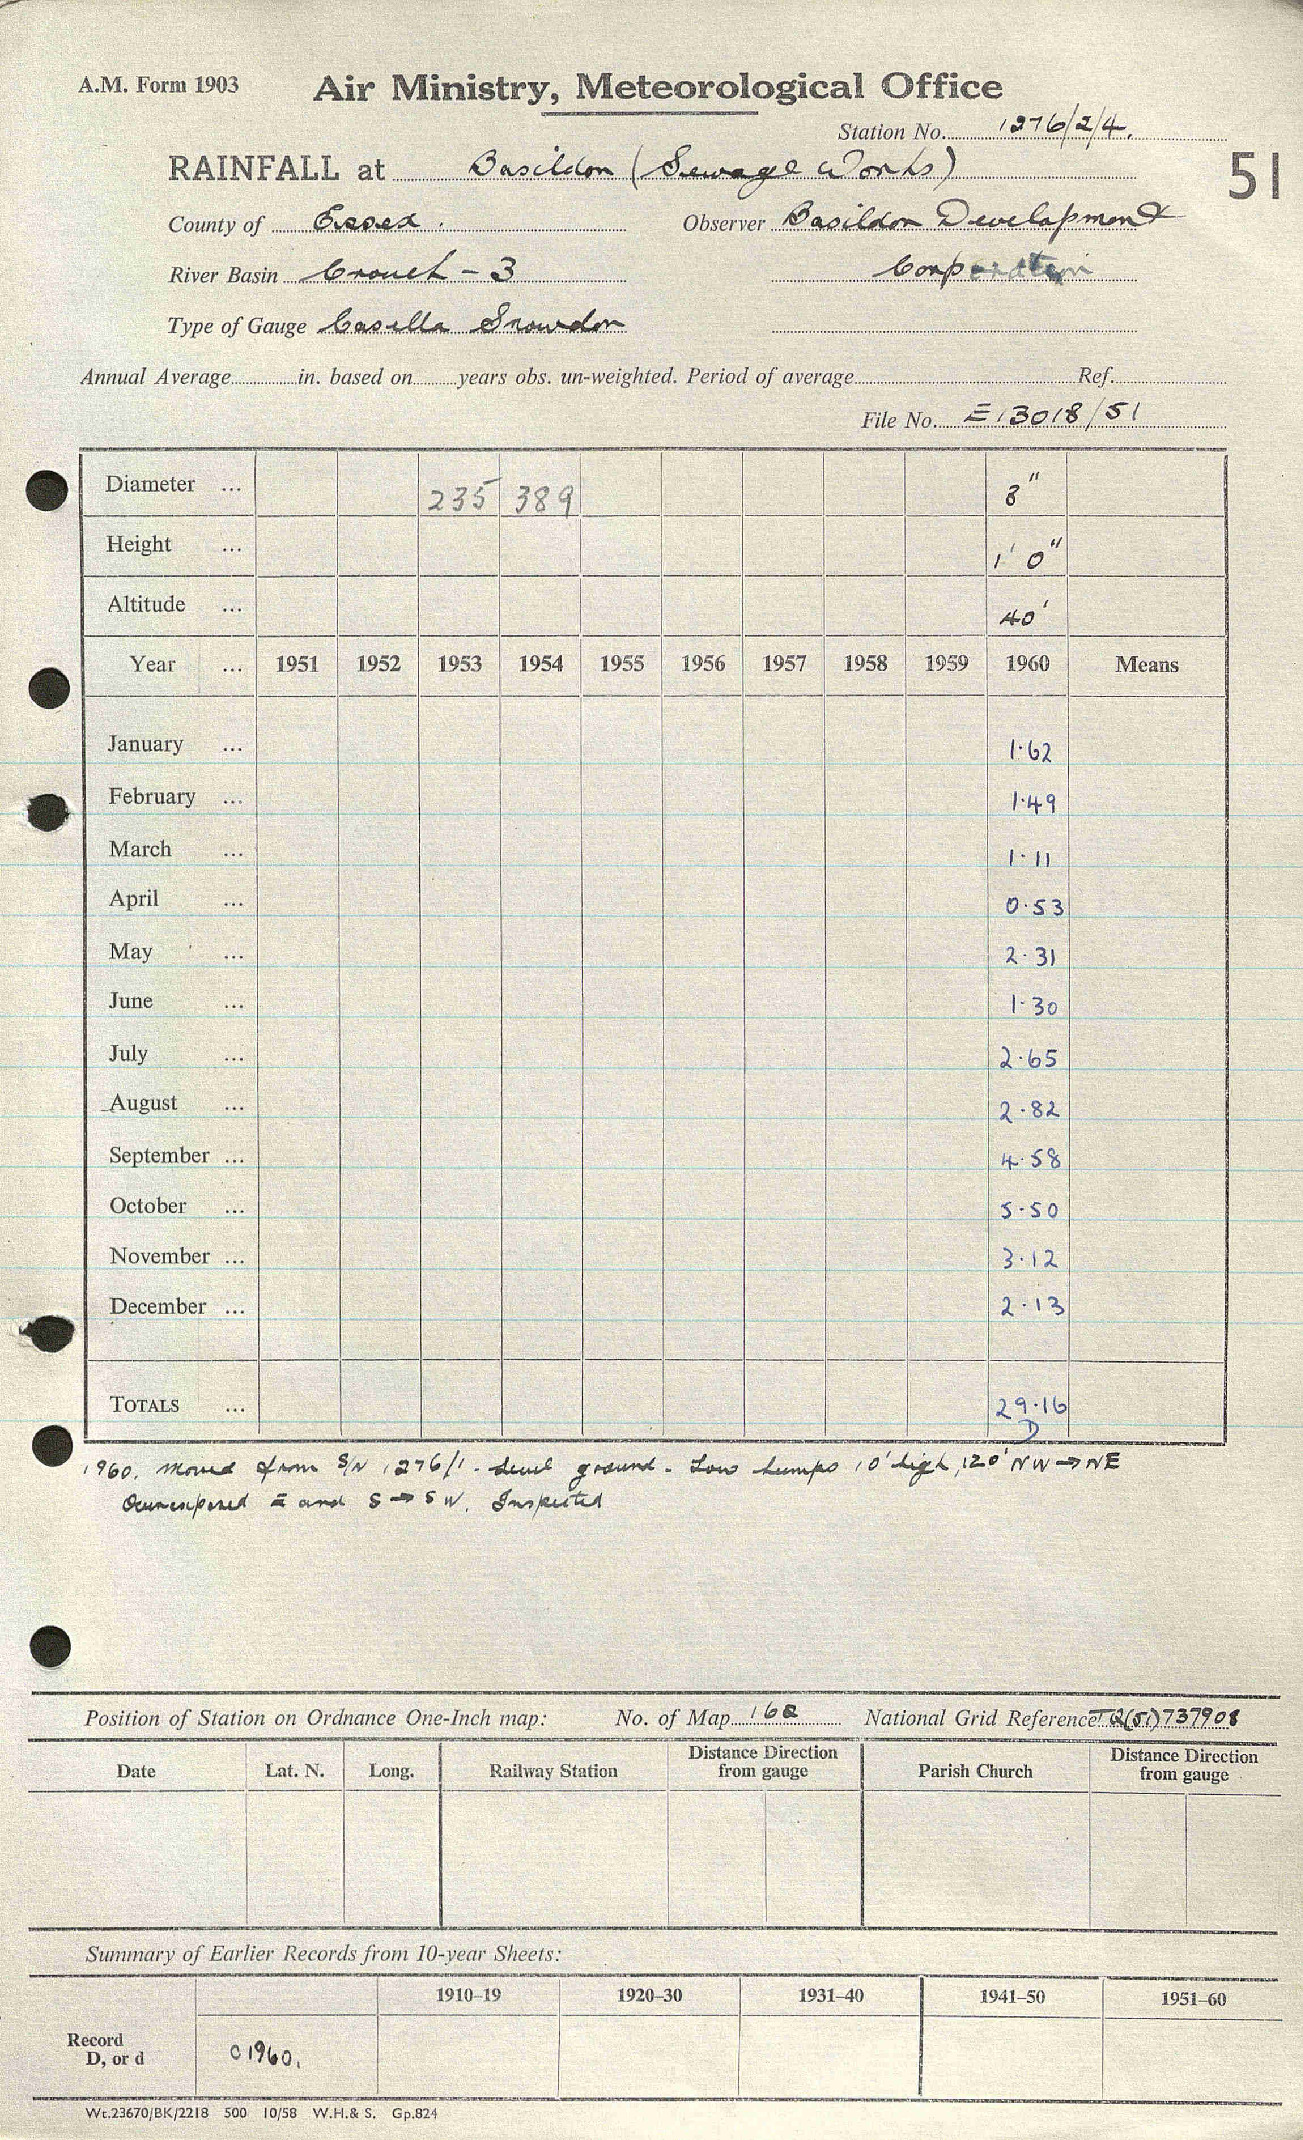 A.M. Form 1903 Air Ministry, Meteorological Office
Station No. 1276/2/4.
RAINFALL at Basildon (Sewage Works) 51
County of Essex. Observer Basildon Development
River Basin Crouch - 3 Corporation
Type of Gauge Casella Snowdon
Annual Average in. based on years obs. un-weighted. Period of average Ref.
File No. E13018/51
Diameter ... 235 389 8"
Height ... 1' 0"
Altitude ... 40'
Year ... 1951 1952 1953 1954 1955 1956 1957 1958 1959 1960 Means
January ... 1.62
February ... 1.49
March ... 1.11
April ... 0.53
May ... 2.31
June ... 1.30
July ... 2.65
August ... 2.82
September ... 4.58
October ... 5.50
November ... 3.12
December ... 2.13
TOTALS ... 29.16
D
1960. Moved from S/N 1276/1. Level ground. Low humps 10' high, 120' NW → NE
Overexposed E and S → SW. Inspected
Position of Station on Ordnance One-Inch map: No. of Map 162 National Grid Reference TQ(51)737908
Date Lat. N. Long. Railway Station Distance Direction from gauge Parish Church Distance Direction from gauge
Summary of Earlier Records from 10-year Sheets:
1910–19 1920–30 1931–40 1941–50 1951–60
Record
D, or d C1960.
Wt.23670/BK/2218 500 10/58 W.H.& S. Gp.824